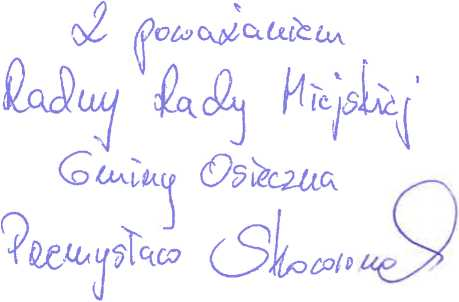 Z poważaniem
Radny Rady Miejskiej
Gminy Osieczna
Przemysław Skoworonek